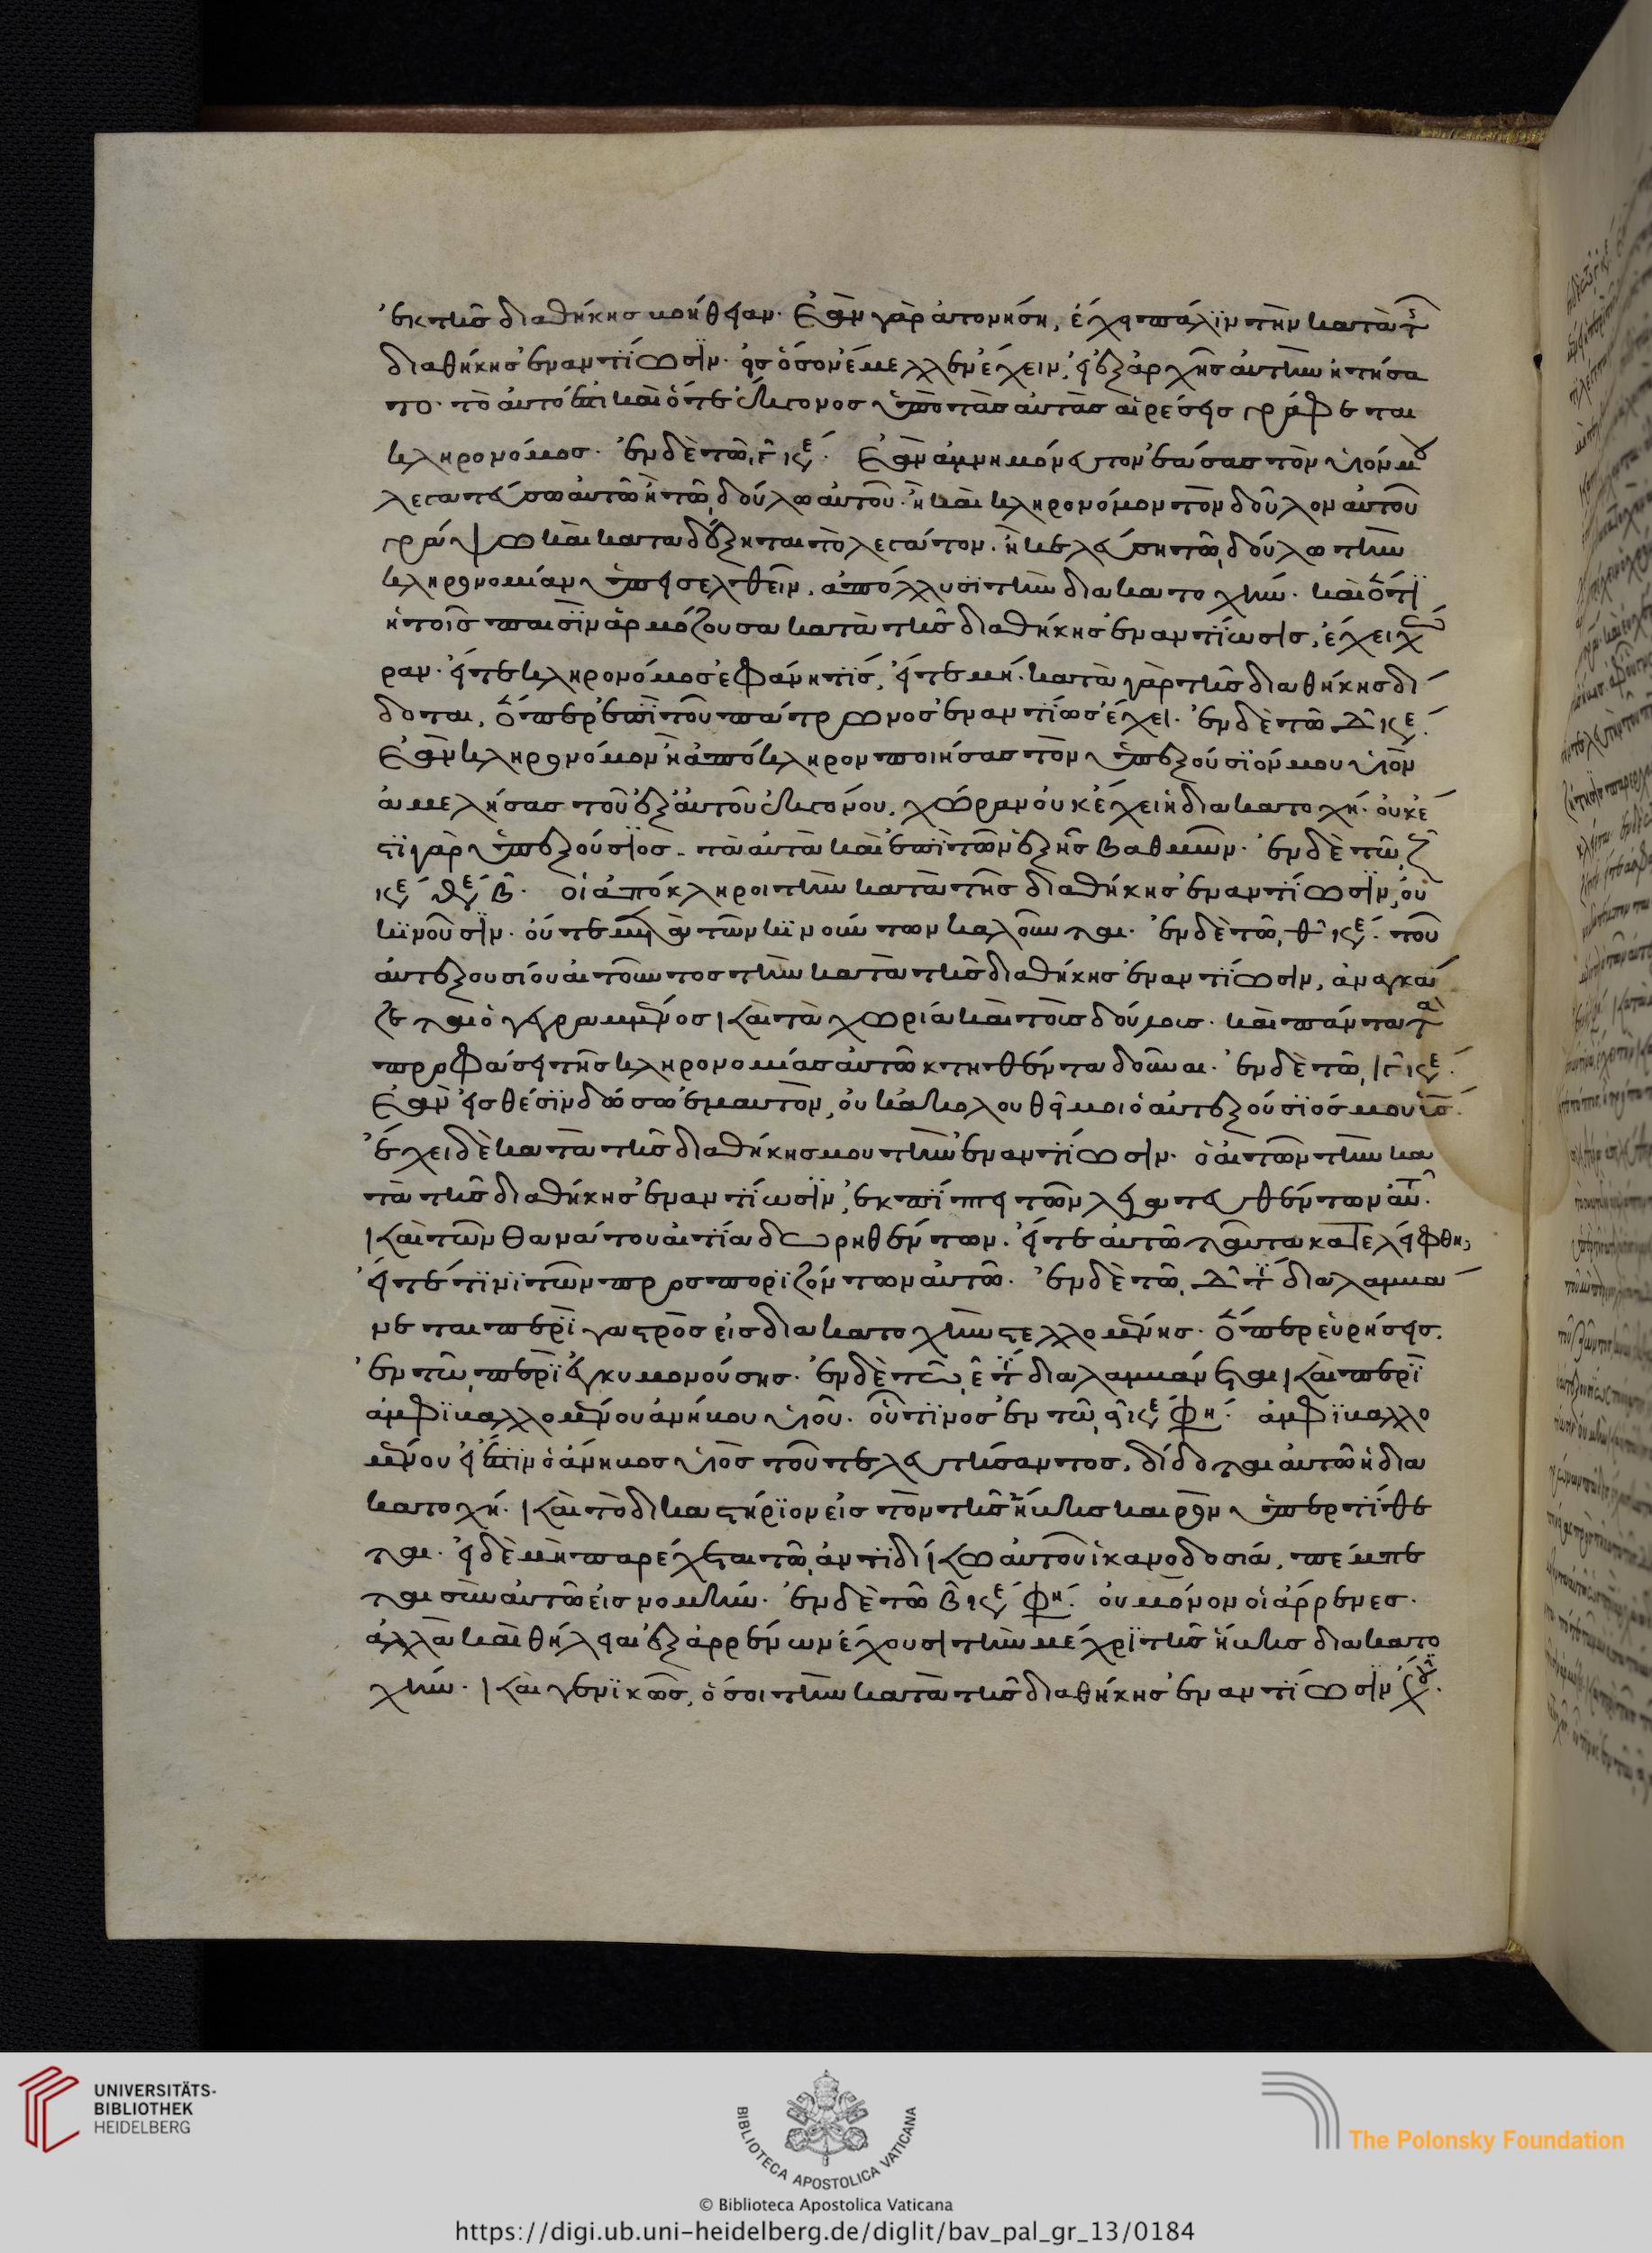 ἐκ τῆς διαθήκης μονήθειαν. Ἐὰν γὰρ ἀπονήσῃ, ἔχει πάλιν τὴν κατὰ τ
διαθήκης ἐναντίωσιν. εἰς ὅσον ἔμελλεν ἔχειν, εἰ ἐξ ἀρχῆς αὐτὴν ᾐτήσα
το. τὸ αὐτό ἐστι καὶ ὅτε ἔκγονος ὑπὸ τὰς αὐτὰς αἱρέσεις γράφεται
κληρονόμος. ἐν δὲ τῷ γ κε. Ἐὰν ἀμνημόνευτον ἐάσας τὸν υἱόν μου
λεγατεύσω αὐτῷ ἢ τῷ δούλῳ αὐτοῦ. ἢ καὶ κληρονόμον τὸν δοῦλον αὐτοῦ
γράψω καὶ καταδέξηται τὸ λεγάτον. ἢ κελεύσῃ τῷ δούλῳ τὴν
κληρονομίαν ὑπεισελθεῖν. ἀπόλλυσι τὴν διακατοχήν. καὶ ὅτι
ἡ τοῖς παισὶν ἁρμόζουσα κατὰ τῆς διαθήκης ἐναντίωσις, ἔχει χώ
ραν. εἴτε κληρονόμος ἐφάνη τίς, εἴτε μή. κατὰ γὰρ τῆς διαθήκης δί
δοται, ὅπερ ἐπὶ τοῦ πάτρωνος ἐναντίως ἔχει. ἐν δὲ τῷ δ κε.
Ἐὰν κληρονόμον ἢ ἀπόκληρον ποιήσας τὸν ὑπεξούσιόν μου υἱὸν
ἀμελήσας τοῦ ἐξ αὐτοῦ ἐκγόνου, χώραν οὐκ ἔχει ἡ διακατοχή. οὐκ ἔ
στι γὰρ ὑπεξούσιος. τὰ αὐτὰ καὶ ἐπὶ τῶν ἑξῆς βαθμῶν. ἐν δὲ τῷ ζ
κε θε β. οἱ ἀπόκληροι τὴν κατὰ τῆς διαθήκης ἐναντίωσιν, οὐ
κινοῦσιν. οὔτε μὴν αὐτῶν κινούντων καλοῦνται. ἐν δὲ τῷ θ κε. τοῦ
αὐτεξουσίου αἰτοῦντος τὴν κατὰ τῆς διαθήκης ἐναντίωσιν, ἀναγκά
ζεται ὁ γεγραμμένος καὶ τὰ χωρία καὶ τοὺς δούλους. καὶ πάντα τὰ
προφάσει τῆς κληρονομίας αὐτῷ κτηθέντα δοῦναι. ἐν δὲ τῷ ιγ κε.
Ἐὰν εἰς θέσιν δώσω ἐμαυτὸν, οὐκ ἀκολουθεῖ μοι ὁ αὐτεξούσιός μου υἱός.
ἔχει δὲ κατὰ τῆς διαθήκης μου τὴν ἐναντίωσιν. ὁ αἰτῶν τὴν κα
τὰ τῆς διαθήκης ἐναντίωσιν, ἐκπίπτει τῶν ληγατευθέντων αὐτ.
καὶ τῶν θανάτου αἰτίᾳ δωρηθέντων. εἴτε αὐτῷ ταῦτα κατελείφθη,
εἴτε τινὶ τῶν προσποριζόντων αὐτῷ. ἐν δὲ τῷ δ τι διαλαμβά
νεται περὶ γαστρὸς εἰς διακατοχὴν στελλομένης. ὅπερ εὑρήσεις.
ἐν τῷ περὶ ἐγκυμονούσης. ἐν δὲ τῷ ε τι διαλαμβάνεται καὶ περὶ
ἀμφιβαλλομένου ἀνήβου υἱοῦ. οὗτινος ἐν τῷ α κε φη. ἀμφιβαλλο
μένου εἰ ἔστιν ὁ ἄνηβος υἱὸς τοῦ τελευτήσαντος, δίδοται αὐτῷ ἡ δια
κατοχή. καὶ τὸ δικαστήριον εἰς τὸν τῆς ἥβης καιρὸν ὑπερτίθε
ται. εἰ δὲ μὴ παρέχεται τῷ ἀντιδίκῳ αὐτοῦ ἱκανοδοσία, πέμπε
ται σὺν αὐτῷ εἰς νομήν. ἐν δὲ τῷ β κε φη. οὐ μόνον οἱ ἄρρενες.
ἀλλὰ καὶ θήλειαι ἐξ ἀρρένων ἔχουσι τὴν μέχρι τῆς ἥβης διακατο
χήν. καὶ γενικῶς, ὅσοι τὴν κατὰ τῆς διαθήκης ἐναντίωσιν
UNIVERSITÄTS-
BIBLIOTHEK
HEIDELBERG
BIBLIOTECA APOSTOLICA VATICANA
The Polonsky Foundation
© Biblioteca Apostolica Vaticana
https://digi.ub.uni-heidelberg.de/diglit/bav_pal_gr_13/0184